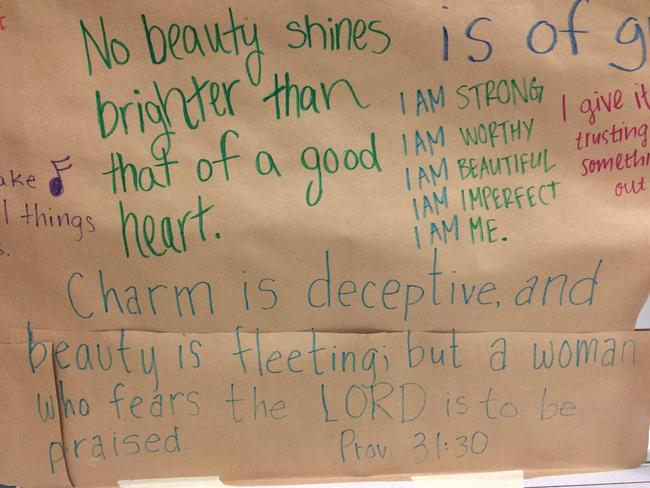 No beauty shines
brighter than
that of a good
heart.
is of
I AM STRONG
I AM WORTHY
I AM BEAUTIFUL
I AM IMPERFECT
I AM ME.
I give it
trusting
out
things
Charm is deceptive, and
beauty is fleeting; but a woman
who fears the LORD is to be
praised.
Prov. 31:30